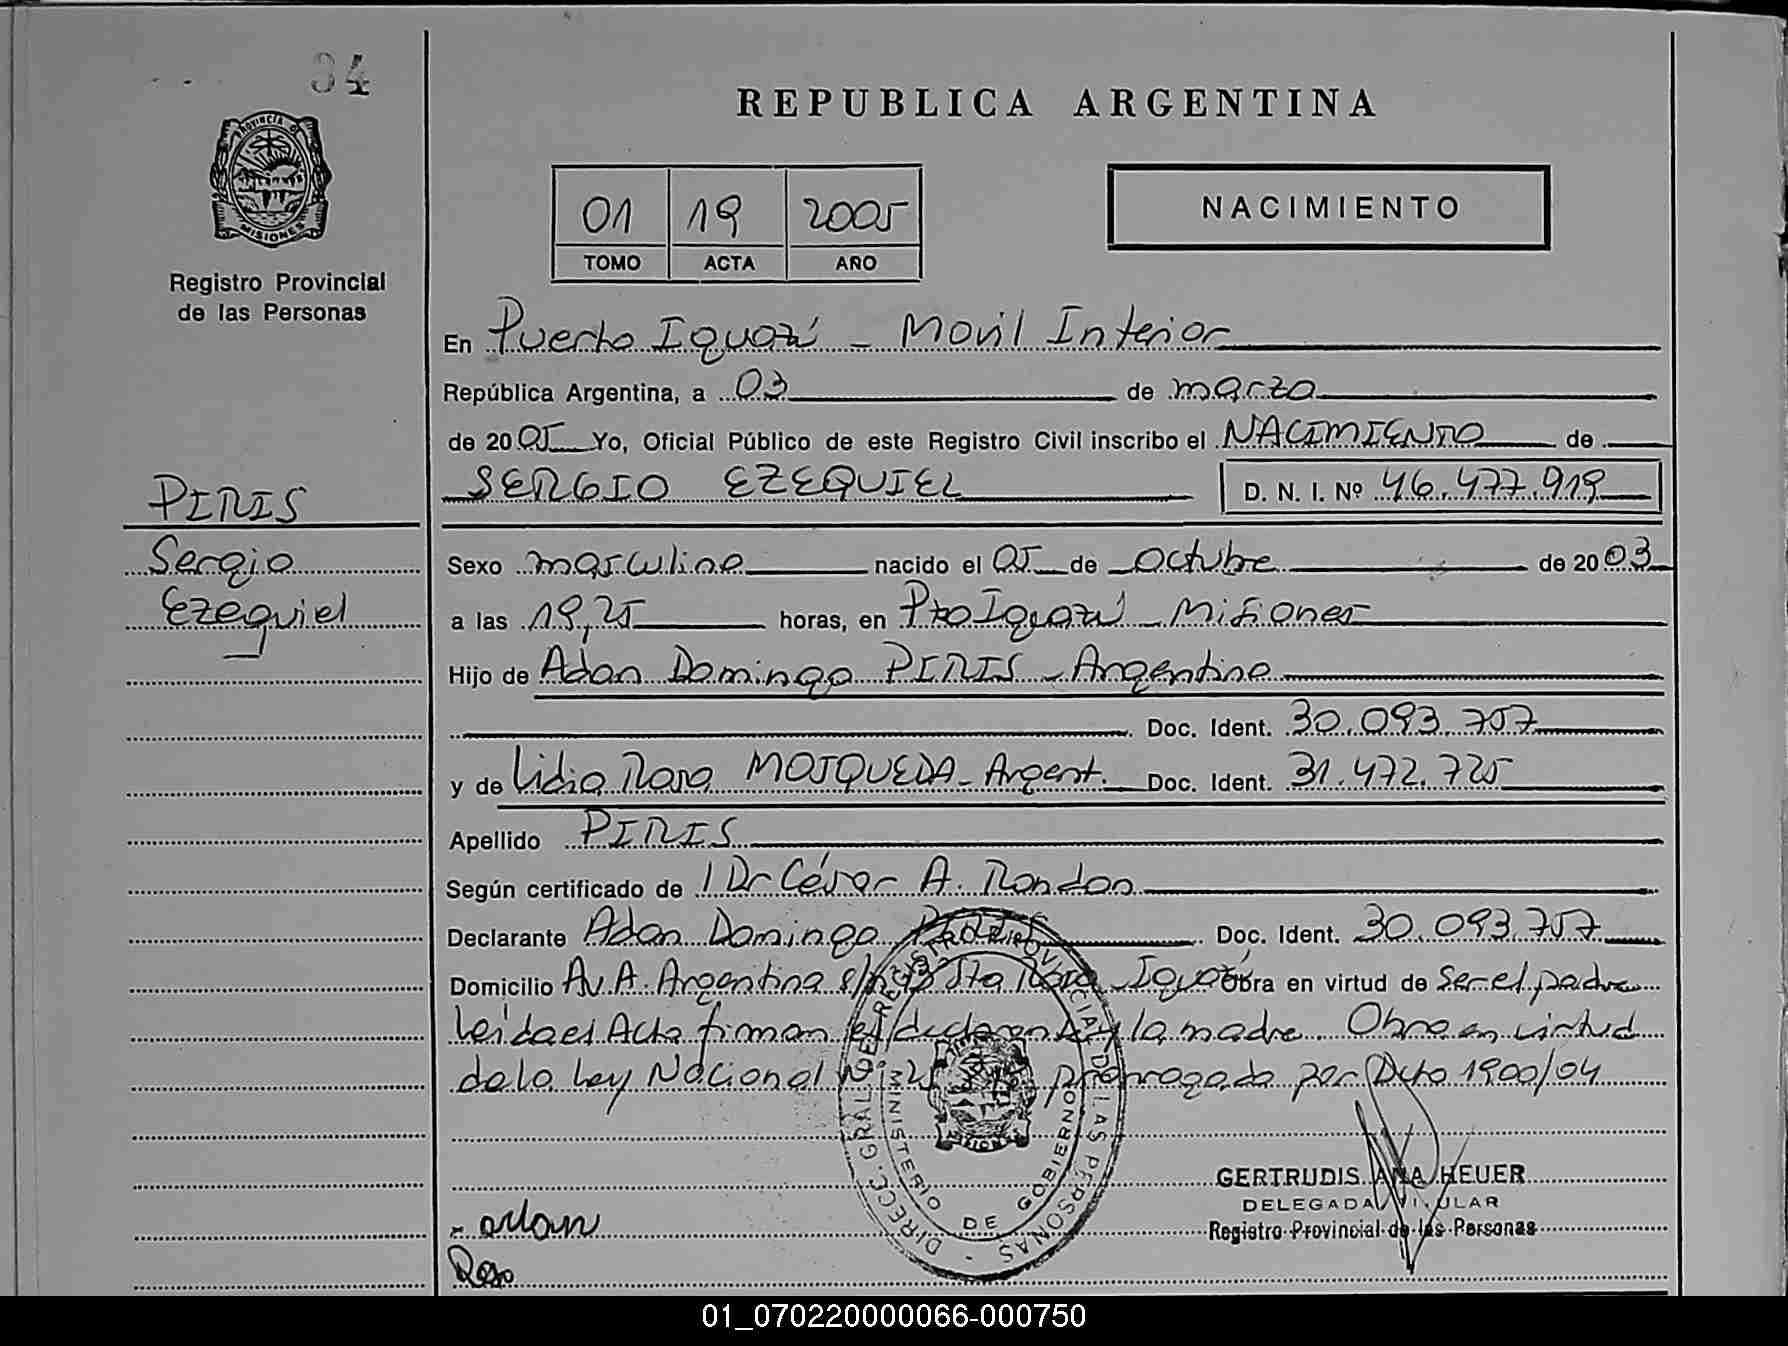 34
PROVINCIA DE
MISIONES
Registro Provincial
de las Personas
REPUBLICA ARGENTINA
01 19 2005
TOMO ACTA AÑO
NACIMIENTO
En Puerto Iguazú - Movil Interior
República Argentina, a 03 de marzo
de 2005 Yo, Oficial Público de este Registro Civil inscribo el NACIMIENTO de
SERGIO EZEQUIEL D. N. I. Nº 46.477.919
PIRIS
Sergio
Ezequiel
Sexo masculino nacido el 05 de octubre de 2003
a las 19,25 horas, en Pto Iguazú - Misiones
Hijo de Adan Domingo PIRIS - Argentino
Doc. Ident. 30.093.757
y de Lidia Rosa MOSQUEDA - Argent. Doc. Ident. 31.472.725
Apellido PIRIS
Según certificado de Dr César A. Rondon
Declarante Adan Domingo PIRIS Doc. Ident. 30.093.757
Domicilio Av. A. Argentina s/n Bº Sta Rosa - Iguazú Obra en virtud de ser el padre
Leida el Acta firman el declarante y la madre. Obra en virtud
de la Ley Nacional Nº prorrogada por Dcto 1900/04
DIRECC. GRAL. DEL REGISTRO PROVINCIAL DE LAS PERSONAS -
MINISTERIO DE GOBIERNO
MISIONES
GERTRUDIS ANA HEUER
DELEGADA TITULAR
Registro Provincial de las Personas
01_070220000066-000750